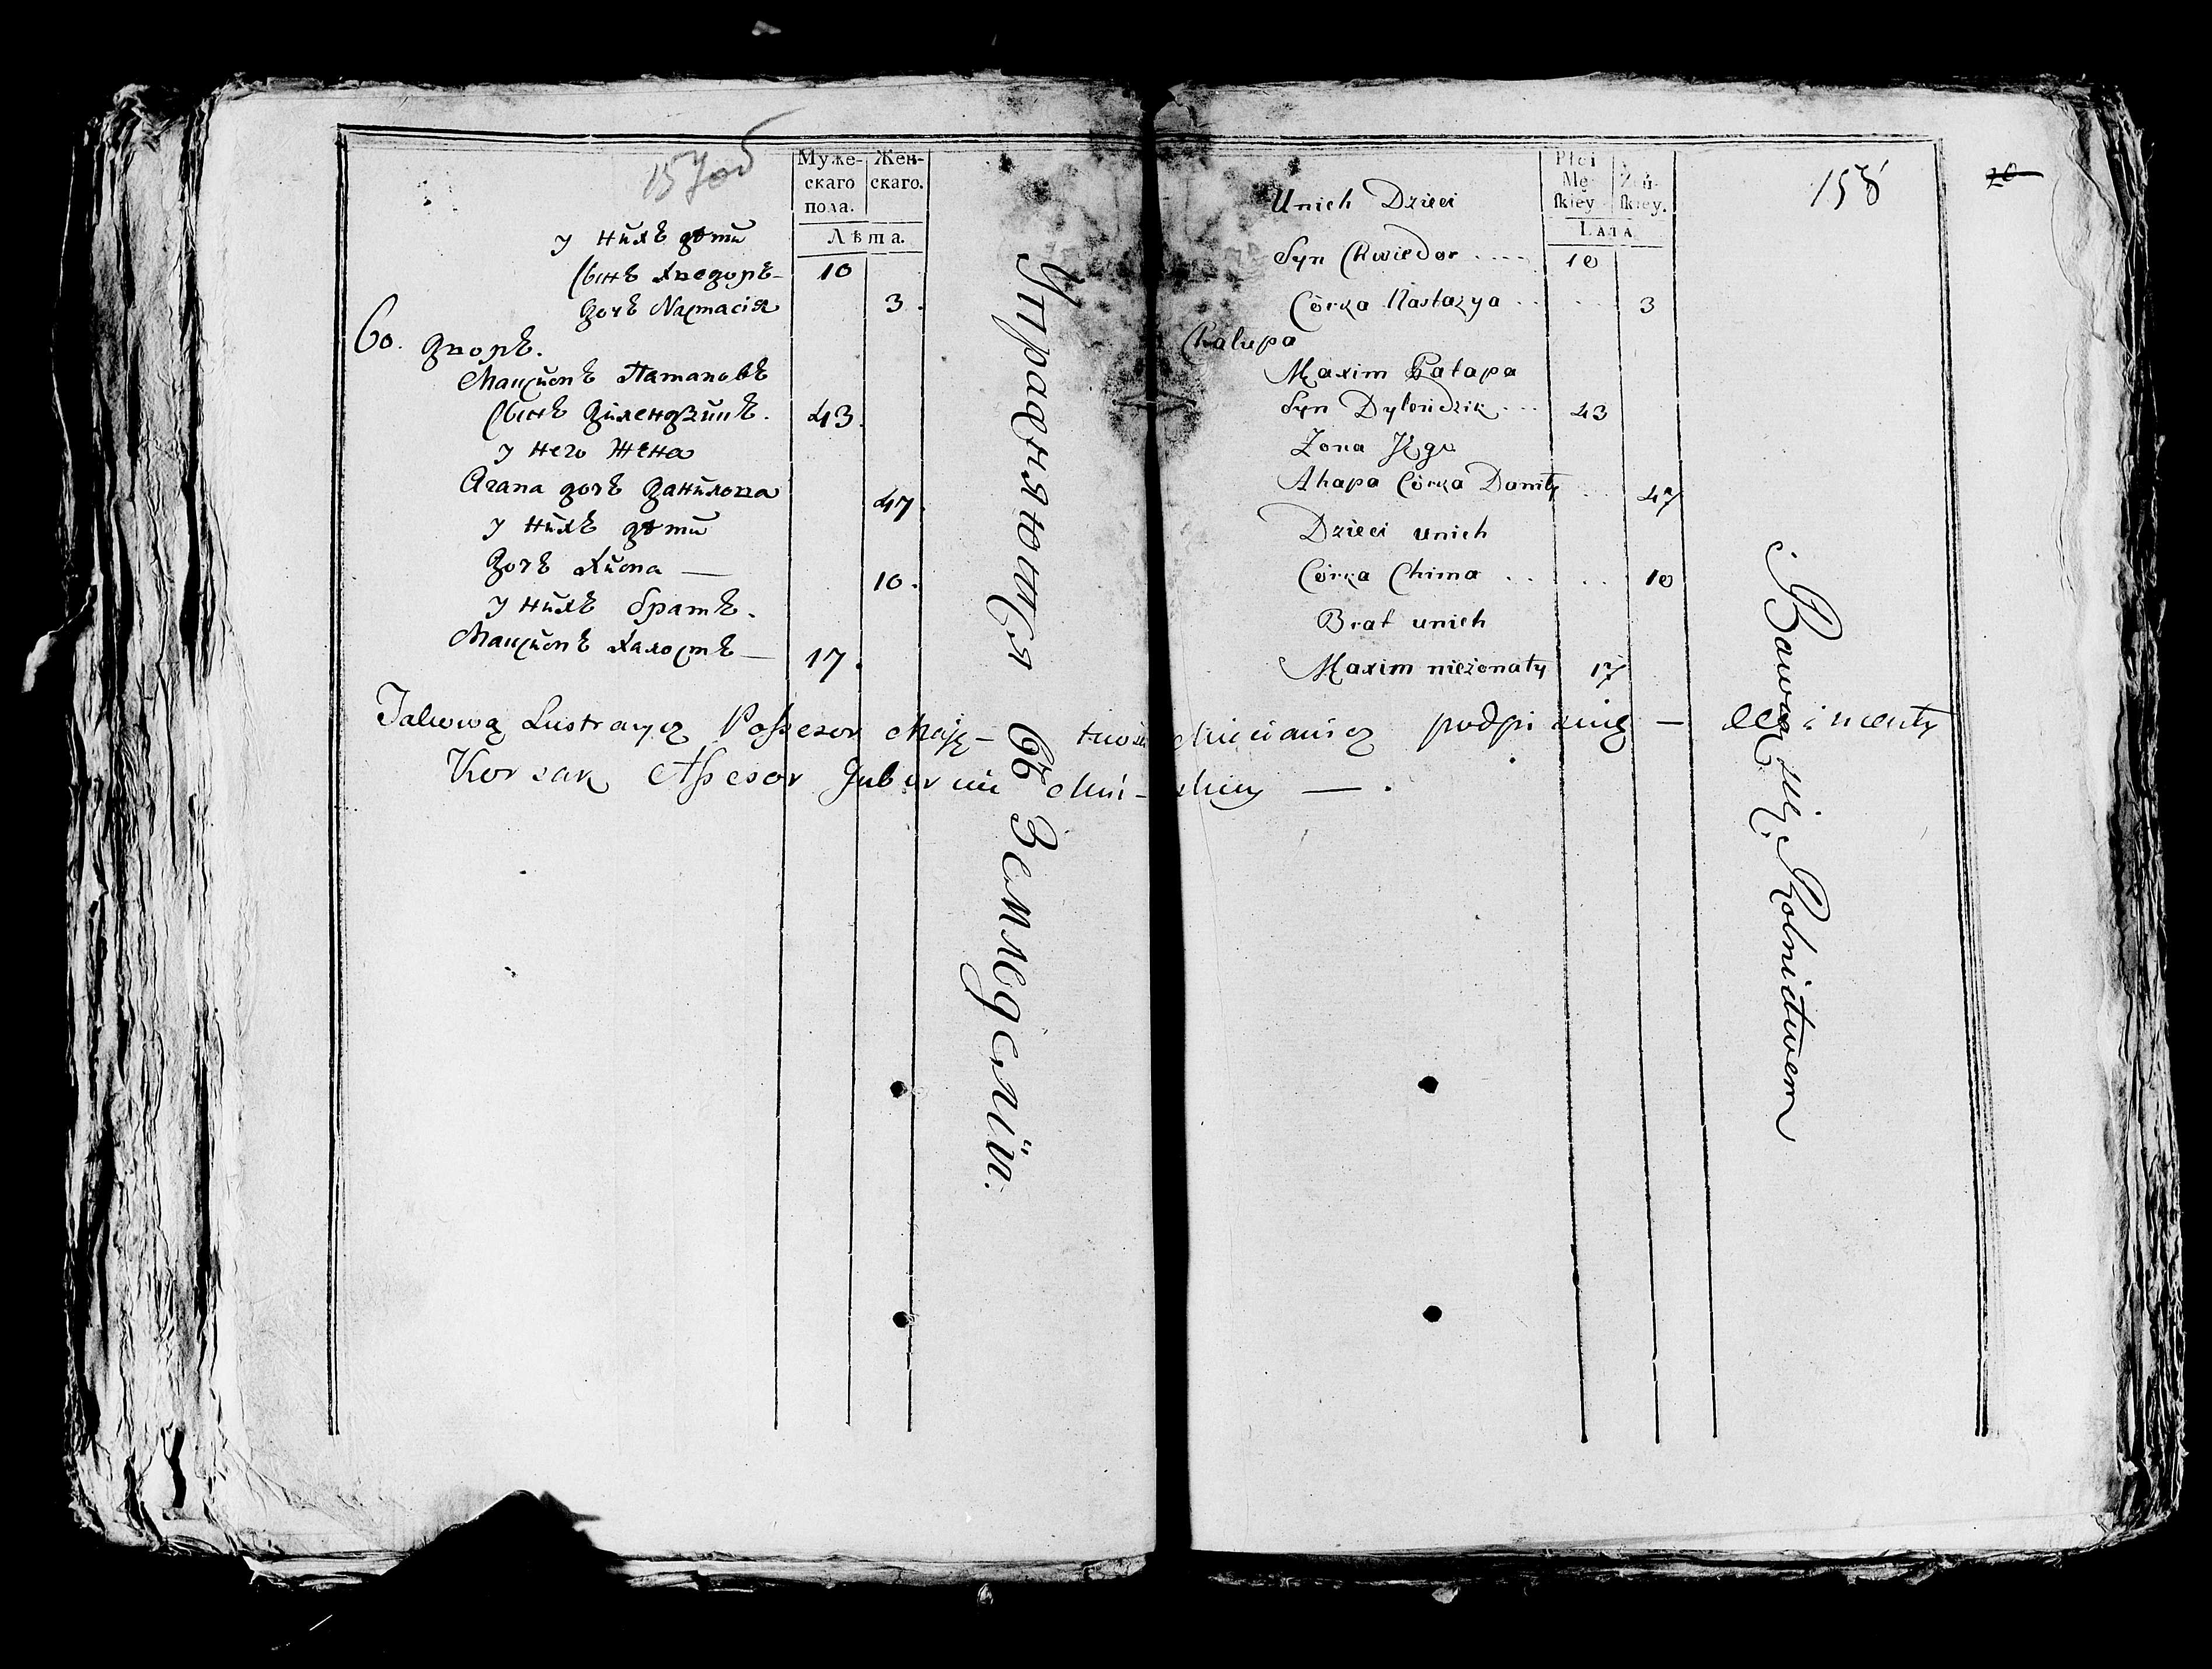 157об
Муже- Жен-
скаго скаго.
пола.
Лѣта.
У нихъ дѣти
Сынъ Хведоръ 10
Дочъ Настасія 3.
60. Дворъ.
Максимъ Патаповъ
Сынъ Диленджикъ. 43.
У него жена
Агапа дочъ Данилова 47.
У нихъ дѣти
Дочъ Хима — 10.
У нихъ братъ.
Максимъ халостъ — 17.
Упражняются въ Земледелїи.
158
20
Płci
Mę- Żeń-
skiey skiey.
Lata
Unich Dzieci
Syn Chwiedor .... 10
Córka Nastazya .. ... 3
Chalupa
Maxim Patapa
Syn Dylendzik ... 43
Żona Jego
Ahapa Córka Daniły .. 47
Dzieci unich
Córka Chima .. ... 10
Brat unich
Maxim nieżonaty 17
Bawią się Rolnictwem
Lustracyą Possesor Mają- podpisuię —
Korsak Assesor Gubernii Miń- skiey — .